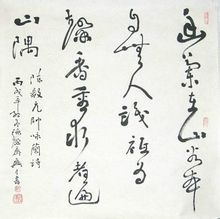 幽蘭在山谷本
自無人識祗為
馨香重求者遍
山隅
陳毅元帥咏蘭詩
丙戌年